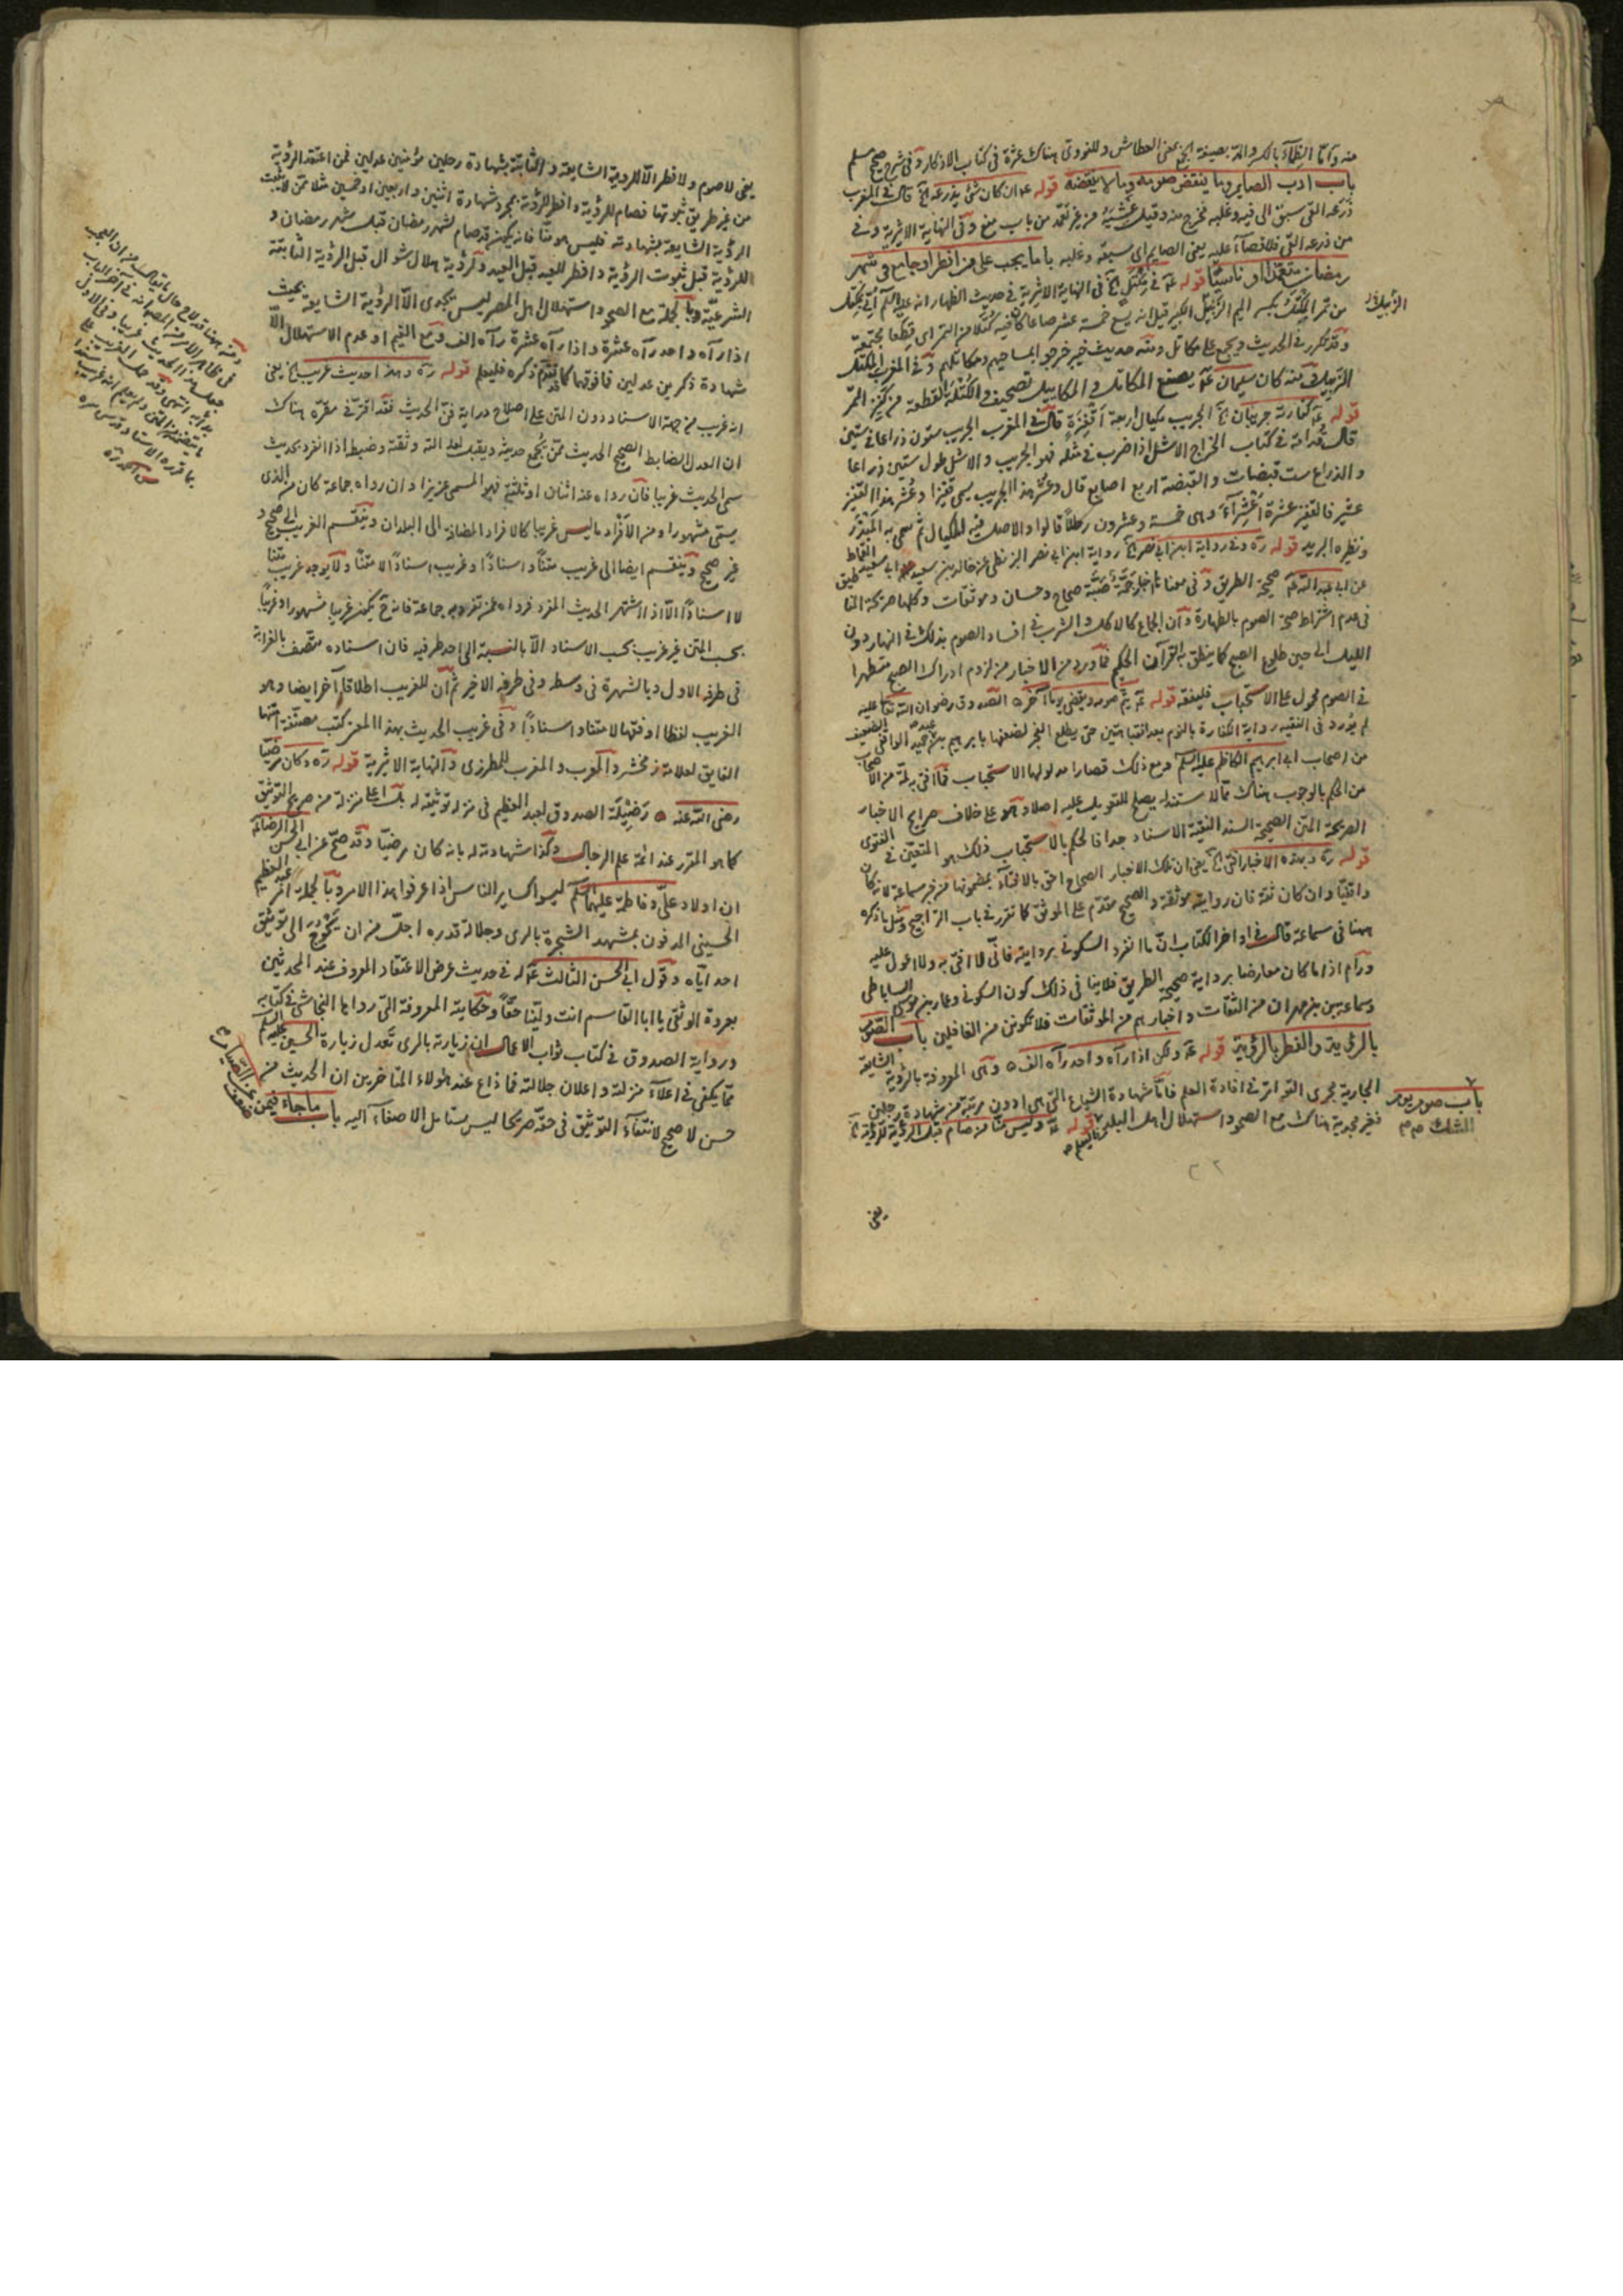 منه وأمّا الظِّمآء بالكسر والمدّ بصيغة الجمع بمعنى العطاش وللنووي هناك عثرة في كتاب الاذكار وفي شرح صحيح مسلم
باب ادب الصايم وما ينقض صومه وما لا ينقضه قوله ان كان شئ يذرعه قال في المغرب
ذرعه القئ سبق الى فيه وغلبه فخرج منه وقيل غشيه من غير تعمّد من باب منع وفي النهاية الاثيرية وفي
من ذرعه القئ فلا قضآء عليه يعني الصايم اى سبقه وغلبه باب ما يجب على من افطر او جامع في شهر
رمضان متعمّدا او ناسيا قوله في مكتل في النهاية الاثيرية في حديث الظهار انه عليه السلم أتي بمكتل
الزبيل
من تمر المِكتل بكسر الميم الزبيل الكبير قيل انه يسع خمسة عشر صاعا كأن فيه كتلا من التمر اى قطعا مجتمعة
وقد تكرر في الحديث ويجمع على مكاتل ومنه حديث خيبر فخرجوا بمساحيهم ومكاتلهم وفي المغرب المكتل
الزبيل ومنه كان سليمان يصنع المكاتل والمكاييل تصحيف والكتلة القطعة من كنيز التمر
قوله كفارته جريبان الجريب مكيال اربعة أقفزة قال في المغرب الجريب ستون ذراعا في ستين
قال قدامة في كتاب الخراج الاشل اذا ضرب في مثله فهو الجريب والاشل طول ستين ذراعا
والذراع ست قبضات والقبضة اربع اصابع قال وعشر هذا الجريب يسمى قفيزا وعشر هذا القفيز
عشير فالقفيز عشرة اعشراء وهى خمسة وعشرون رطلا قالوا والاصل فيه المكيال ثم سمى به المبذر
ونظيره البريد قوله ره وفي رواية ابن ابي نصر رواية ابن ابي نصر البزنطي عن خالد بن سعيد ابي سعيد القماط
عن ابي عبد الله صحيحة الطريق وفي معناها اخبار جمّة صحاح وحسان وموثقات وكلها صريحة
في عدم اشتراط صحة الصوم بالطهارة وأن الجماع كالاكل والشرب في افساد الصوم بذلك في النهار دون
الليل الى حين طلوع الصبح كما ينطق به القرآن الحكيم فما ورد من الاخبار من لزوم ادراك الصبح متطهرا
في الصوم محمول على الاستحباب فليفقه قوله يتم صومه ويقضي يوما آخر الصدوق رضوان الله تعا عليه
لم يورد في الفقيه رواية الكفارة بالنوم بعد انتباهتين حتى يطلع الفجر لضعفها بابراهيم بن عبد الحميد الواقفي الضعيف
من اصحاب ابي ابراهيم الكاظم عليه السلم ومع ذلك قصارا مدلولها الاستحباب فما افتى به لمّة من الاصحاب
من الحكم بالوجوب هناك مما لا مستند له يصلح للتعويل عليه اصلا وهو على خلاف صرايح الاخبار
الصريحة المتن الصحيحة السند النقيّة الاسناد جدا فالحكم بالاستحباب في ذلك هو المتعيّن في الفتوى
قوله ره وبهذه الاخبار افتى يعني ان تلك الاخبار الصحاح احق بالافتآء بمضمونها من خبر سماعة لانه كان
واقفيا وان كان ثقة فان روايته موثقة والصحيح مقدّم على الموثق كما تقرر في باب التراجيح ومثل ما ذكره
ههنا في سماعة قال في اواخر الكتاب انّ ما انفرد السكوني بروايته فانّي لا افتى به ولا اعول عليه
ورام اذا ما كان معارضا برواية صحيحة الطريق فلا ينافي ذلك كون السكوني وعمار بن موسى الساباطي
وسماعة بن مهران من الثقات واخبارهم من الموثقات فلا تكونن من الغافلين باب الصوم
بالرؤية والفطر بالرؤية قوله ولكن اذا رآه واحد رآه الف وهى المعروفة بالرؤية الشايعة
الجارية مجرى التواتر في افادة العلم فامّا شهادة الشياع التي هى ادون مرتبة من شهادة رجلين
باب صوم يوم
الشك
فغير مجدية هناك مع الصحو واستهلال اهل البلد قوله وليس منّا من صام قبل الرؤية للرؤية
يعني
يعني لا صوم ولا فطر الّا للرؤية الشايعة والثابتة بشهادة رجلين مؤمنين عدلين فمن اعتقد الرؤية
من غير طريق ثبوتها فصام للرؤية وافطر للرؤية بمجرد شهادة اثنين واربعين او خمسين مثلا ممّن لا يثبت
الرؤية الشايعة بشهادته فليس هو منّا فانه يكون قد صام لشهر رمضان قبل شهر رمضان و
للرؤية قبل ثبوت الرؤية وافطر للعيد قبل العيد ولرؤية هلال شوال قبل الرؤية الثابتة
الشرعيّة وبالجملة مع الصحو واستهلال اهل المصر ليس يجدى الّا الرؤية الشايعة بحيث
اذا رآه واحد رآه عشرة واذا رآه عشرة رآه الف ومع الغيم او عدم الاستهلال الّا
شهادة ذكرين عدلين فما فوقهما كما تقدّم ذكره فليعلم قوله ره وهذا حديث غريب يعني
انه غريب من جهة الاسناد دون المتن على اصطلاح دراية فنّ الحديث فقد اقرّ في مقرّه هناك
ان العدل الضابط الصحيح الحديث ممّن يُجمع حديثه ويقبل لعدالته وثقته وضبطه اذا انفرد بحديث
سمى الحديث غريبا فان رواه عنه اثنان او ثلثة فهو المسمى عزيزا وان رواه جماعة كان من الذى
يسمّى مشهورا ومن الافراد ما ليس غريبا كالافراد المضافة الى البلدان وينقسم الغريب الى صحيح و
غير صحيح وينقسم ايضا الى غريب متنًا واسنادًا وغريب اسنادًا لا متنًا ولا يوجد غريب متنا
لا اسنادًا الّا اذا اشتهر الحديث المفرد فرواه عمّن تفرد به جماعة فانه ح يكون غريبا مشهورا وغريبا
بحسب المتن غير غريب بحسب الاسناد الّا بالنسبة الى احد طرفيه فان اسناده متّصف بالغرابة
في طرفه الاول وبالشهرة في وسطه وفي طرفه الاخير ثم ان للغريب اطلاقا آخر ايضا وهو
الغريب لفظا او فقها لا متنا واسنادا وفي غريب الحديث بهذا المعنى كتب مصنّفة امّها
الفايق لعلامة زمخشر والمعرب والمغرب للمطرزى والنهاية الاثيرية قوله ره وكان مرضيّا
رضى الله عنه رَضيلة الصدوق لعبد العظيم في منزلة توثيقه له بل اعلى منزلة من صريح التوثيق
كما هو المقرر عند ائمة علم الرجال وكذا شهادته له بانه كان مرضيا وقد صحّ عن ابي الحسن الرضا
ان اولاد علىّ وفاطمة عليهما السلم ليسوا كساير الناس اذا عرفوا هذا الامر وبالجملة امر عبد العظيم
الحسيني المدفون بمشهد الشجرة بالرى وجلالة قدره اجلّ من ان يُحْوِج الى توثيق
احد ايّاه وقول ابي الحسن الثالث له في حديث عرض الاعتقاد المعروف عند المحدثين
بعروة الوثقى يا ابا القاسم انت وليّنا حقّا وحكايته المعروفة التي رواها النجاشي في كتابه
ورواية الصدوق في كتاب ثواب الاعمال ان زيارته بالرى تعدل زيارة الحسين عليه السلم
ممّا يكفى في اعلآء منزلته واعلان جلالته فما ذاع عند هؤلاء المتاخرين ان الحديث من
حسن لا صحيح لانتفآء التوثيق في حقّه صريحا ليس يستاهل الاصغآء اليه باب ما جاء فيمن
ضعف عن الصيام